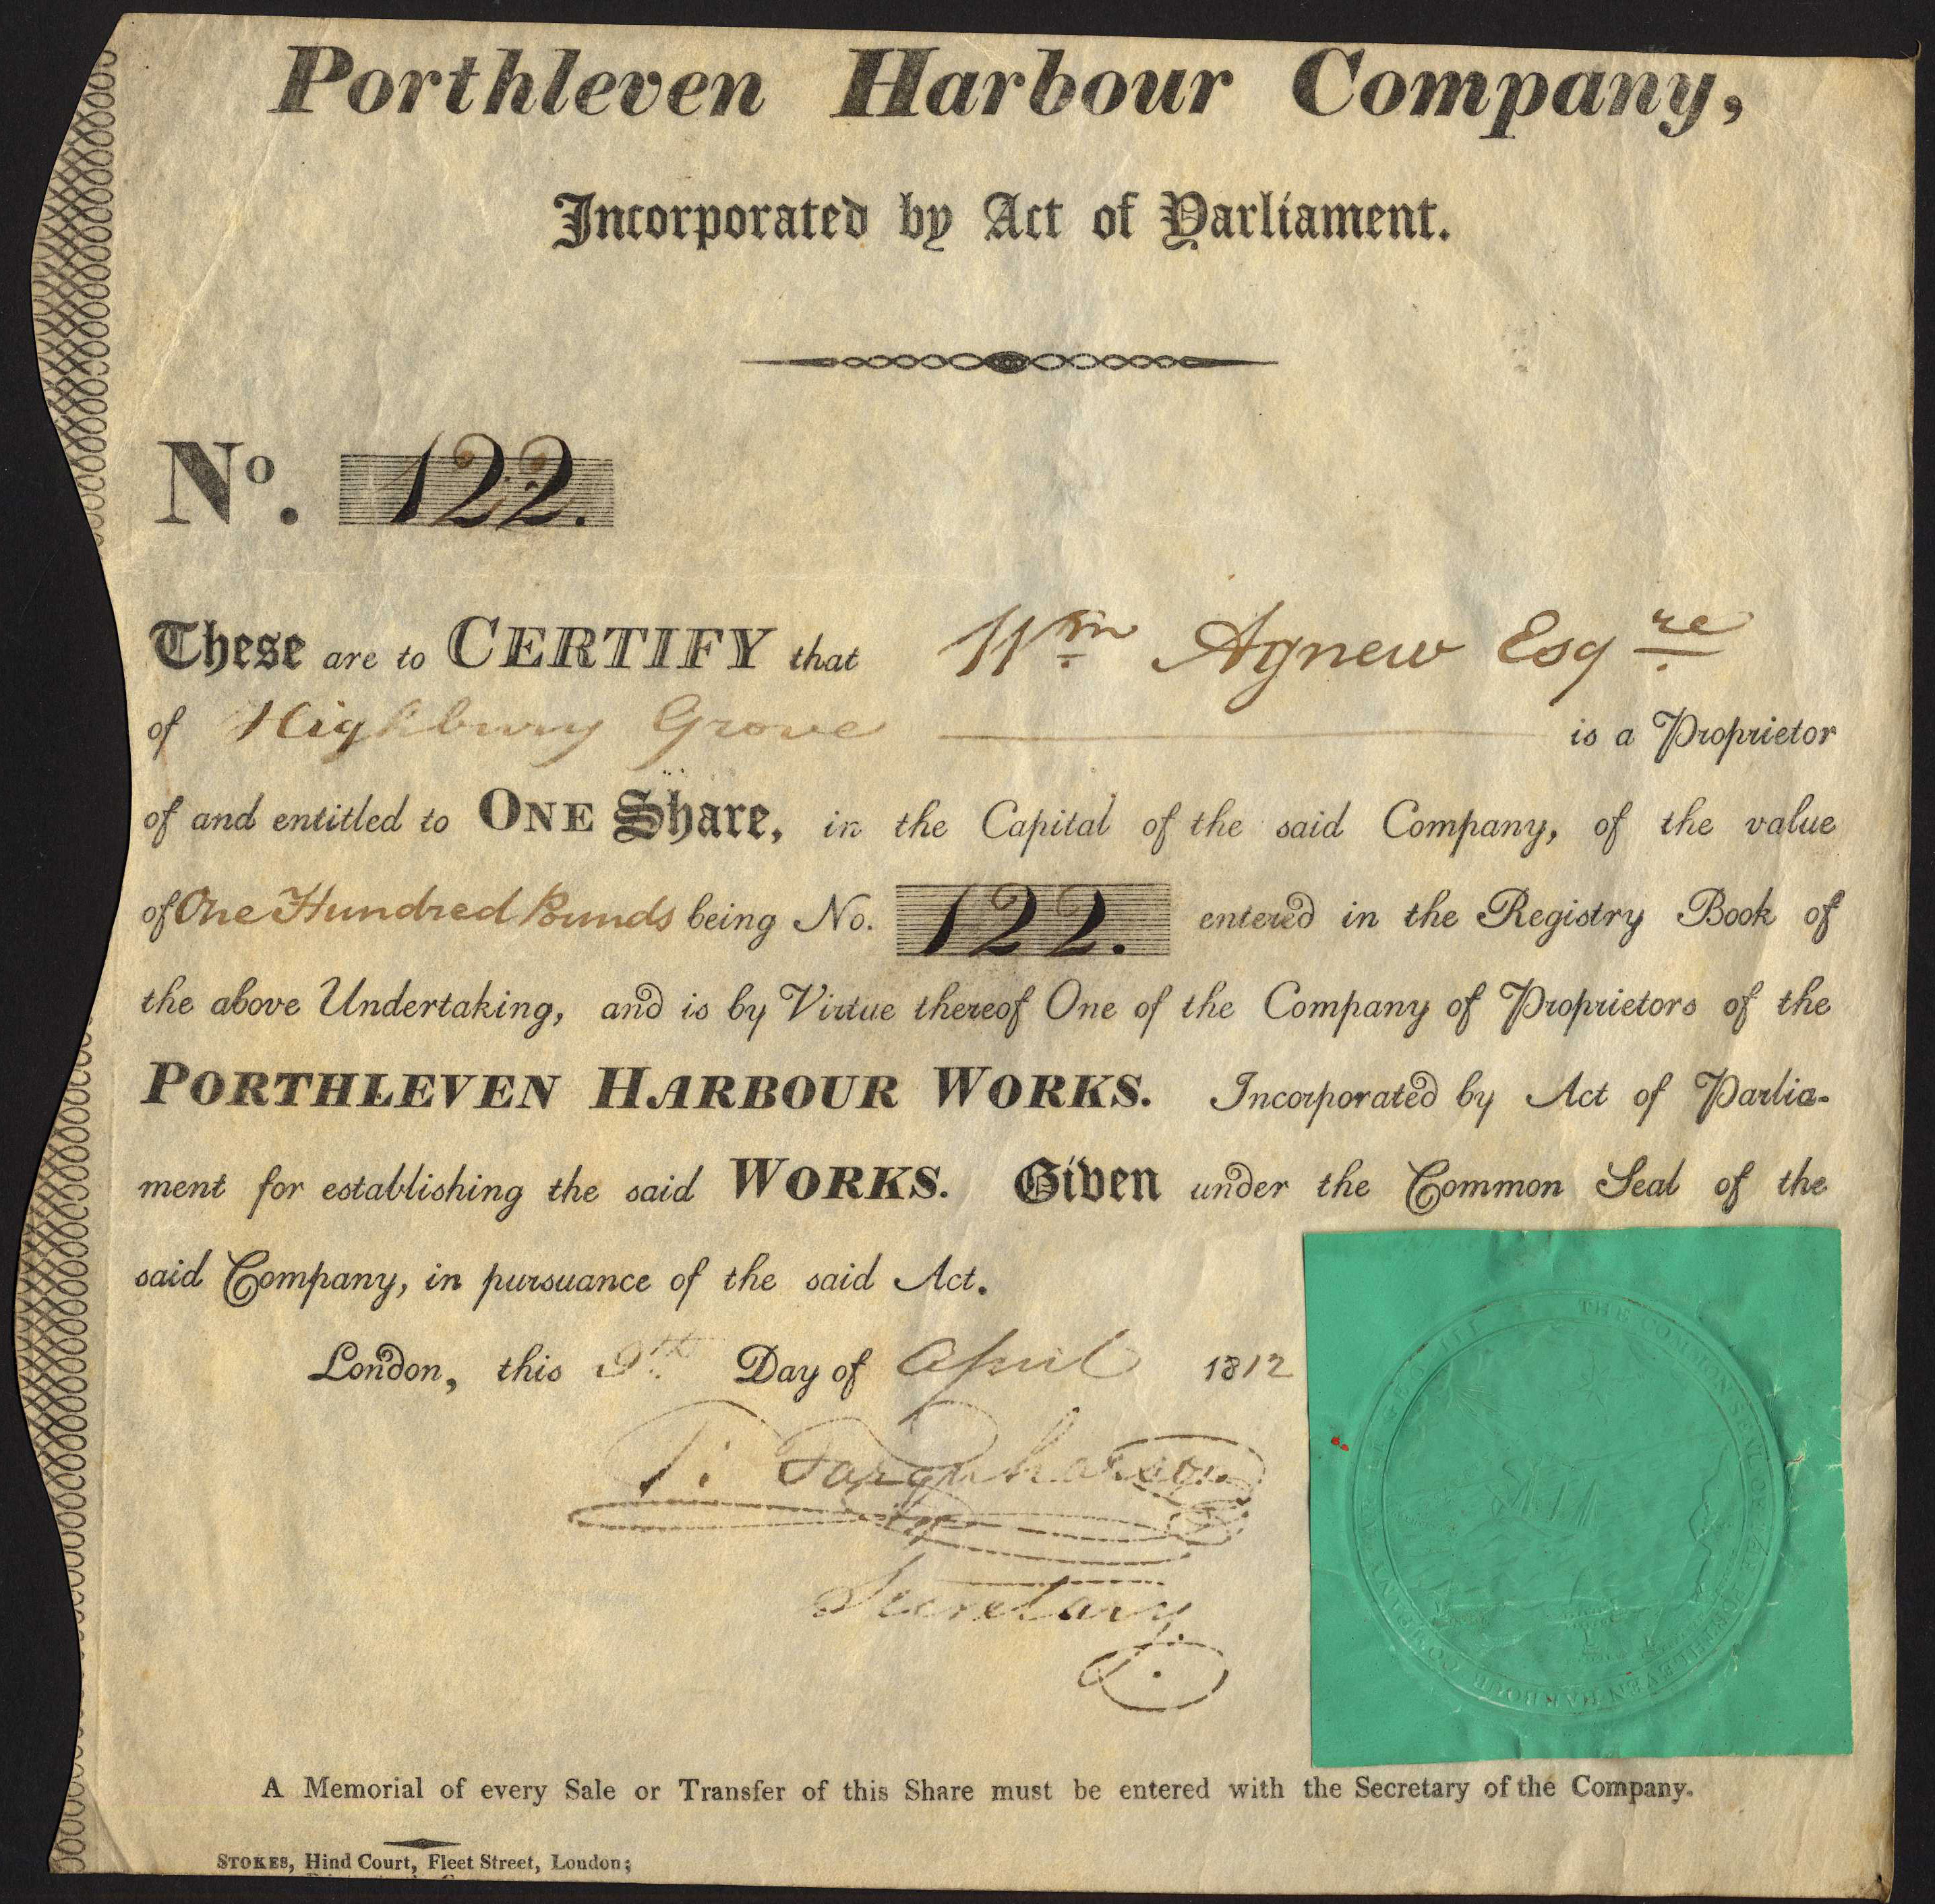 Porthleven Harbour Company,
Incorporated by Act of Parliament.
No. 122.
These are to CERTIFY that Wm Agnew Esqre
of Highbury Grove is a Proprietor
of and entitled to ONE Share, in the Capital of the said Company, of the value
of One Hundred Pounds being No. 122. entered in the Registry Book of
the above Undertaking, and is by Virtue thereof One of the Company of Proprietors of the
PORTHLEVEN HARBOUR WORKS. Incorporated by Act of Parlia-
ment for establishing the said WORKS. Given under the Common Seal of the
said Company, in pursuance of the said Act.
London, this 9th Day of April 1812
Farquharson
Secretary
THE COMMON SEAL OF THE PORTHLEVEN HARBOUR COMPANY
A Memorial of every Sale or Transfer of this Share must be entered with the Secretary of the Company.
STOKES, Hind Court, Fleet Street, London;